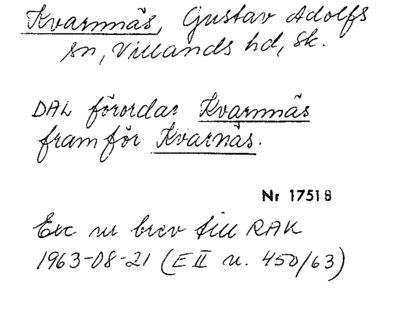 Kvarnnäs, Gustav Adolfs
sn, Villands hd, Sk.
DAL förordar Kvarnnäs
framför Kvarnäs.
Nr 17518
Exc ur brev till RAK
1963-08-21 (E II u. 450/63)